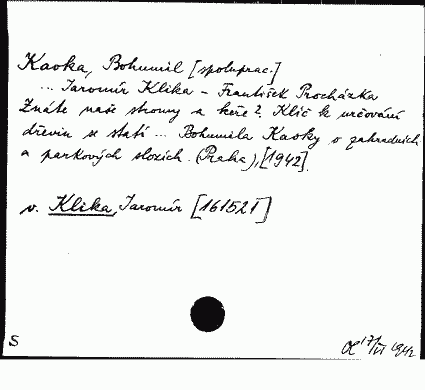 Kavka, Bohumil [spoluprac.]
... Jaromír Klika – František Procházka
Znáte naše stromy a keře? Klíč k určování
dřevin se statí ... Bohumila Kavky o zahradních
a parkových slozích. (Praha), [1942].
v. Klika, Jaromír [161521]
S
17/VI 1942